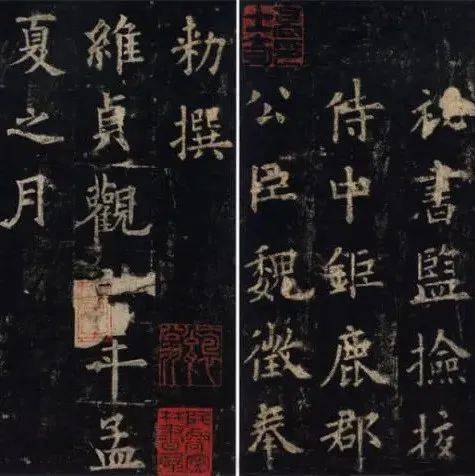 祕書監撿挍
侍中鉅鹿郡
公臣魏徵奉
勅撰
維貞觀年孟
夏之月